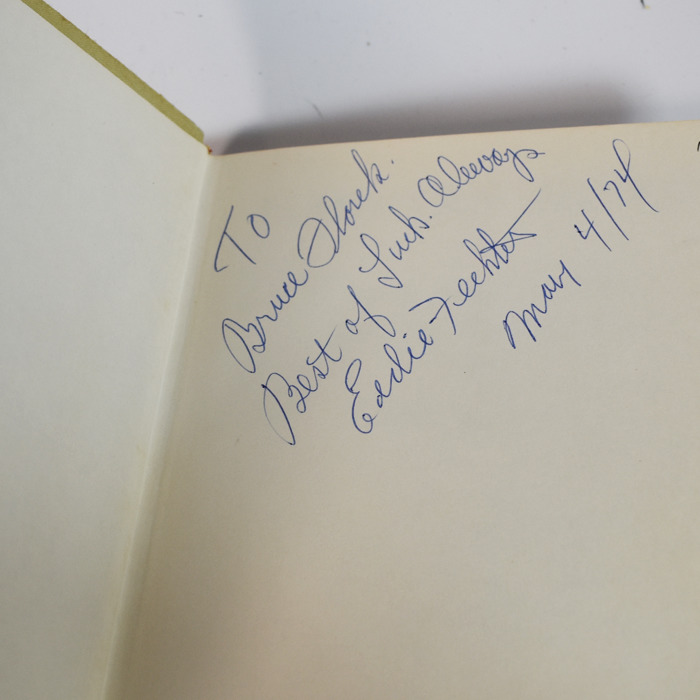 To
Bruce Florek.
Best of Luck. Always
Eddie Fechter
May 4/74